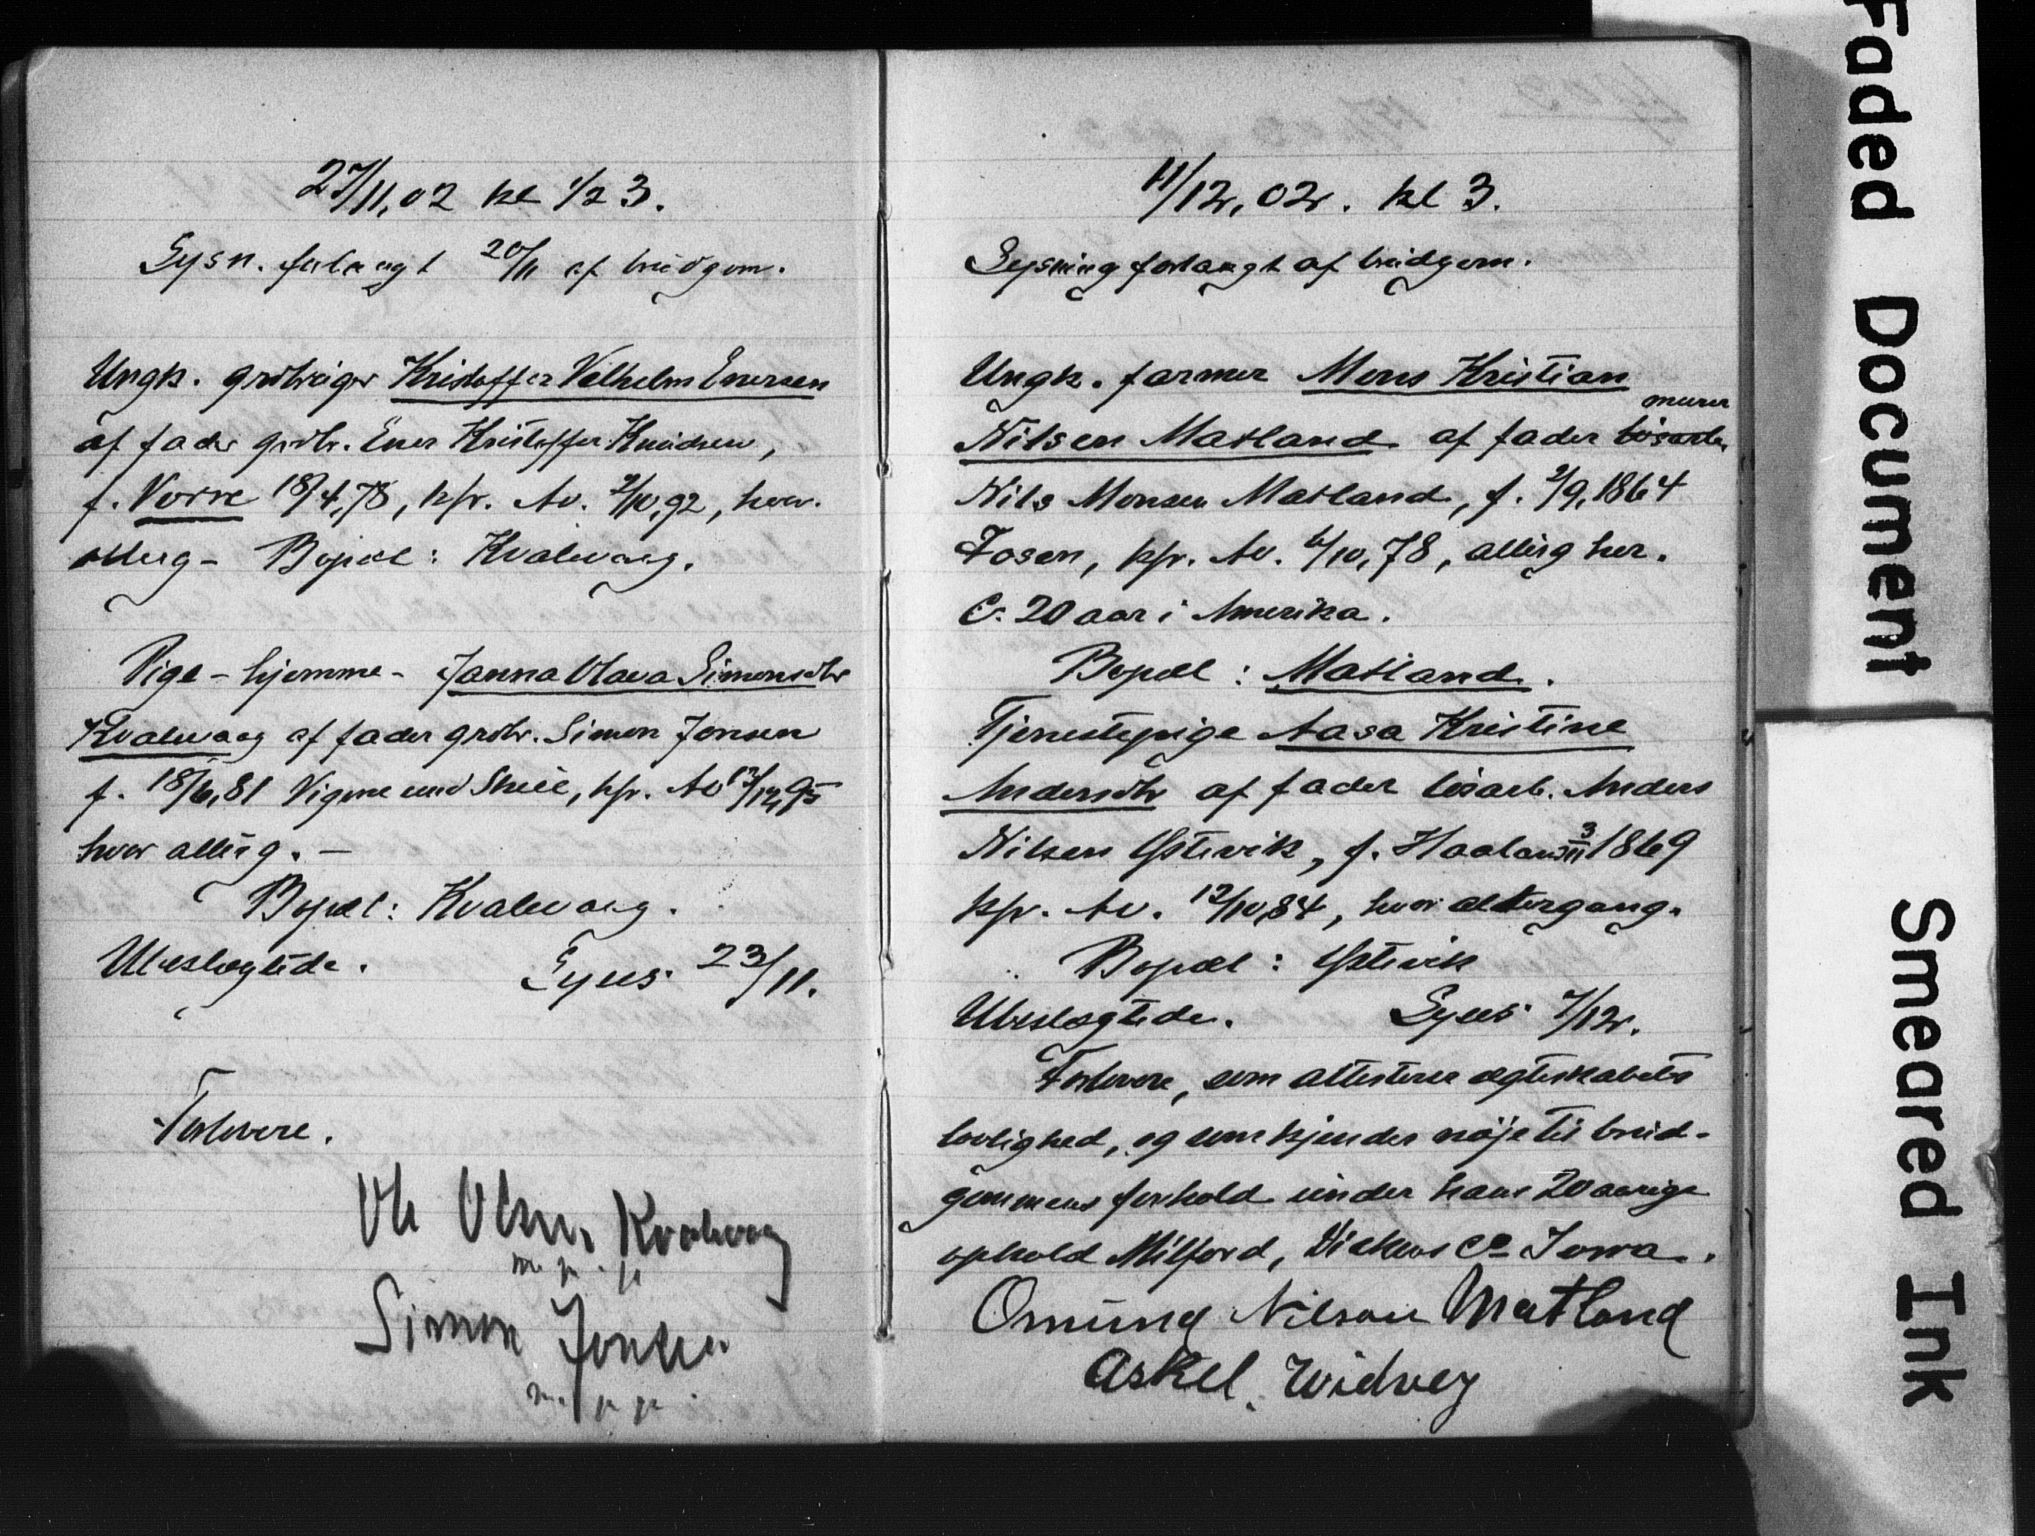 27/11,02 kl 1/2 3.
Lysn. forlangt 20/11 af brudgom.
Ungk. grdbruger Kristoffer Vilhelm Enersen
af fader grdbr. Ener Kristoffer Knudsen,
f. Vorre 18/4,78, kfr. Av. 2/10,92, hvor.
alterg - Bopæl: Kvalevaag.
Pige - hjemme - Janna Olava Simonsdtr
Kvalevaag af fader grdbr. Simon Jonsen
f. 18/6,81 Vigene Skree, kfr. Av /12,95
hvor alterg. -
Bopæl: Kvalevaag.
Ubeslægtede. Lyses 23/11.
Forlovere.
Ole Olsen Kvalevaag
m. p. p
Simon Jonsen
m. p p
11/12, 02. kl 3.
Lysning forlangt af brudgom.
Ungk. farmer Mons Kristian
murer
Nilsen Matland af fader løsarb.
Nils Monsen Matland, f. 2/9, 1864
Fosen, kfr. Av. 6/10,78, alterg her.
C. 20 aar i Amerika.
Bopæl: Matland.
Tjenestepige Aasa Kristine
Andersdtr af fader løsarb. Anders
Nilsen Østevik, f. Haaland 3/11 1869
kfr. Av. 12/10,84, hvor altergang.
Bopæl: Østevik
Ubeslægtede. Lyses 7/12.
Forlovere, som attesterer ægteskabets
lovlighed, og som kjender nøje til brud-
gommens forhold under hans 20 aarige
ophold Milford, Dickens Co Iowa.
Osmund Nilsen Matland
Askel. Widvey
Faded Document
Smeared Ink